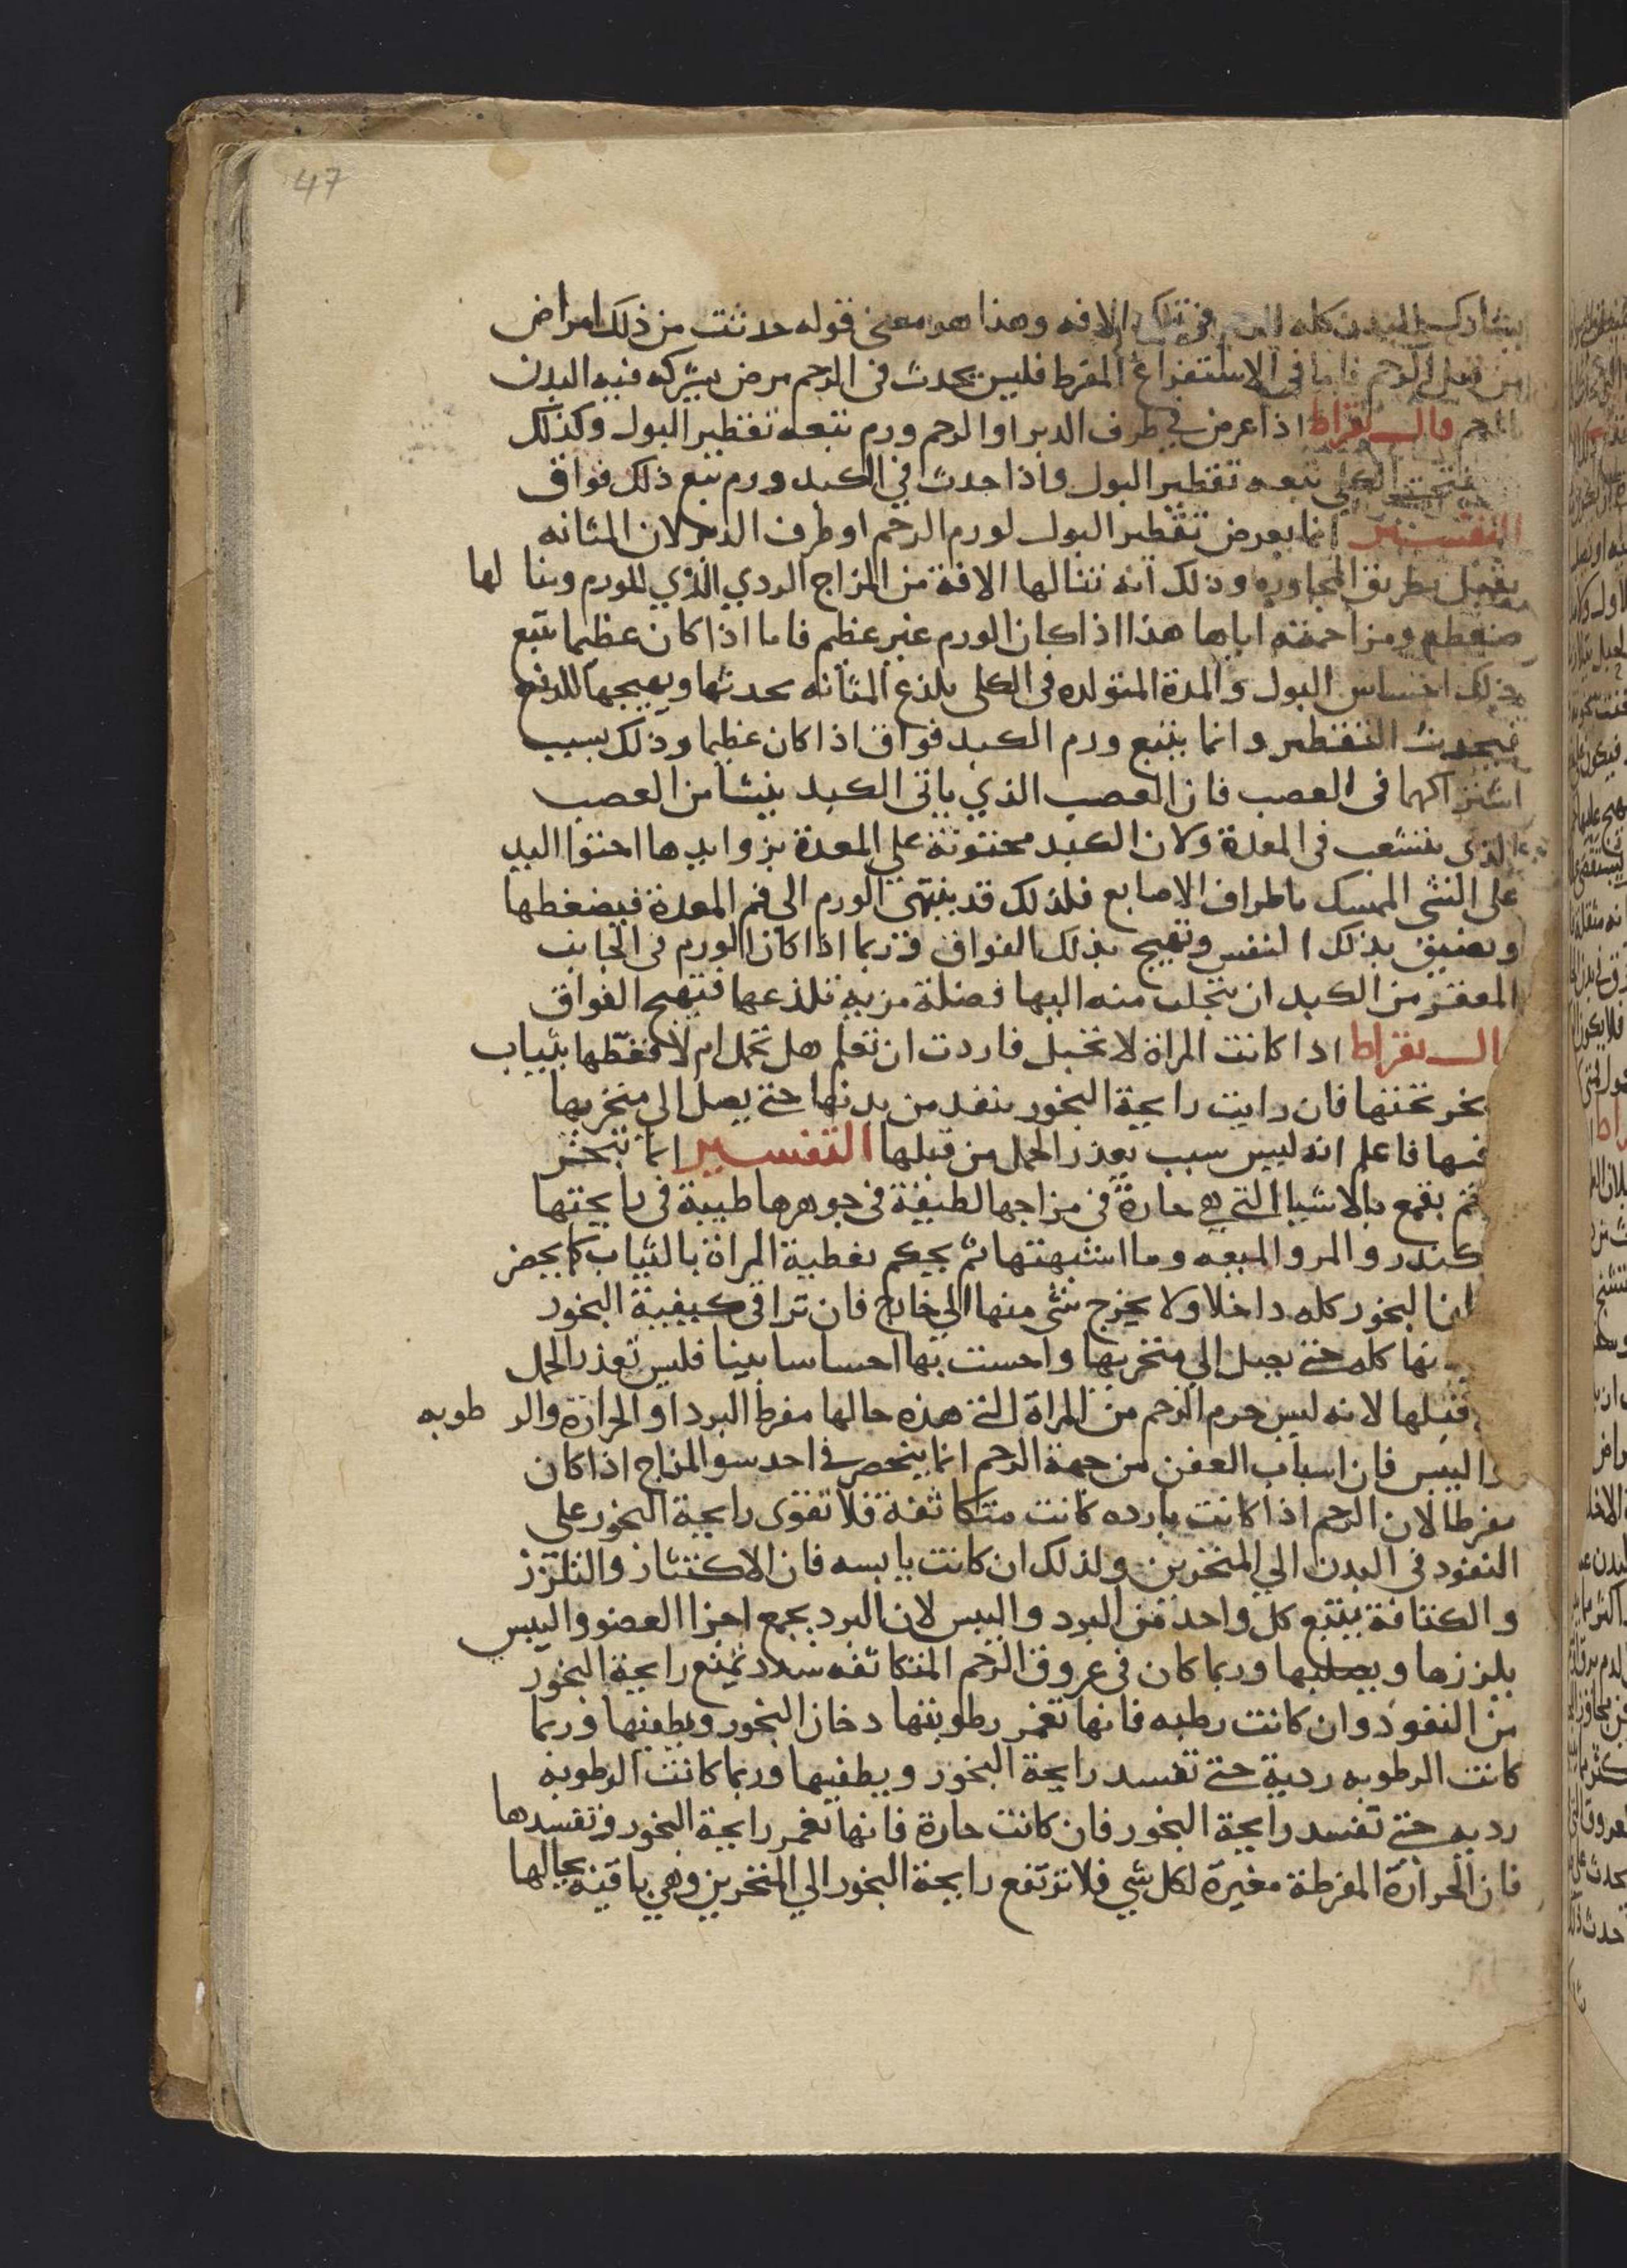 47
يشارك البدن كله الرحم في تلك الافه وهذا هو معنى قوله حدثت من ذلك امراض
من قبل الرحم فاما في الاستفراغ المفرط فليس يحدث في الرحم مرض يشركه فيه البدن
الرحم قال بقراط اذا عرض في طرف الدبر او الرحم ورم تبعه تقطير البول وكذلك
الكلى تبعه تقطير البول واذا حدث في الكبد ورم تبع ذلك فواق
التفسير انما يعرض تقطير البول لورم الرحم او طرف الدبر لان المثانه
بطريق المجاوره وذلك انه تنالها الافة من المزاج الردي الذي للورم وبنا لها
ضغطه ومزاحمته اياها هذا اذا كان الورم غير عظيم فاما اذا كان عظيما يتبع
ذلك احتباس البول والمدة المتولده في الكلى يلذع المثانه بحدتها ويهيجها للدفع
فيحدث التقطير وانما يتبع ورم الكبد فواق اذا كان عظيما وذلك بسبب
اشتراكهما في العصب فان العصب الذي ياتي الكبد ينشا من العصب
الذي يتشعب في المعدة ولان الكبد محتوتة علي المعدة بزوايدها احتوا اليد
على الشي الممسك باطراف الاصابع فلذلك قد ينتهي الورم الى فم المعدة فيضغطها
ويضيق بذلك النفس وتهيج بذلك الفواق وربما اذا كان الورم في الجانب
المقعر من الكبد ان يتجلب منه اليها فضلة مرية تلذعها فتهيج الفواق
ال بقراط اذا كانت المراة لا تحبل فاردت ان تعلم هل تحمل ام لا فغطها بثياب
بخر تحتها فان رايت رايحة البخور ينفد من بدنها حتي يصل الى منخريها
فمها فاعلم انه ليس سبب تعذر الحمل من قبلها التفسير انما تبخر
بقمع بالاشيا التي هي حارة في مزاجها لطيفة في جوهرها طيبة في رايحتها
كندر والمر والميعه وما اشبهتها ثم يحكم تغطية المراة بالثياب كما يحصر
البخور كله داخلا ولا يخرج شي منها الي خارج فان تراقي كيفية البخور
نها كله حتي يصل الي منخريها واحست بها احساسا بينا فليس تعذر الحمل
قبلها لانه ليس جرم الرحم من المراة التي هذه حالها مفرط البرد او الحرارة والرطوبه
اليبس فان اسباب العقر من جهة الرحم انما ينحصر في احد سو المزاج اذا كان
مفرطا لان الرحم اذا كانت بارده كانت متكاثفة فلا تقوى رايحة البخور على
النفود في البدن الي المنخرين ولذلك ان كانت يابسه فان الاكتناز والتلزز
والكثافة يتبع كل واحد من البرد واليبس لان البرد يجمع اجزا العضو واليبس
يلززها ويصلبها وربما كان في عروق الرحم المتكاثفه سدد تمنع رايحة البخور
من النفوذ وان كانت رطبه فانها تغمر رطوبتها دخان البخور ويطفيها وربما
كانت الرطوبه ردية حتي تفسد رايحة البخور ويطفيها وربما كانت الرطوبه
رديه حتي تفسد رايحة البخور فان كانت حارة فانها تغمر رايحة البخور وتفسدها
فان الحرارة المفرطة مغيرة لكل شي فلا ترتفع رايحة البخور الي المنخرين وهي باقيه بحالها